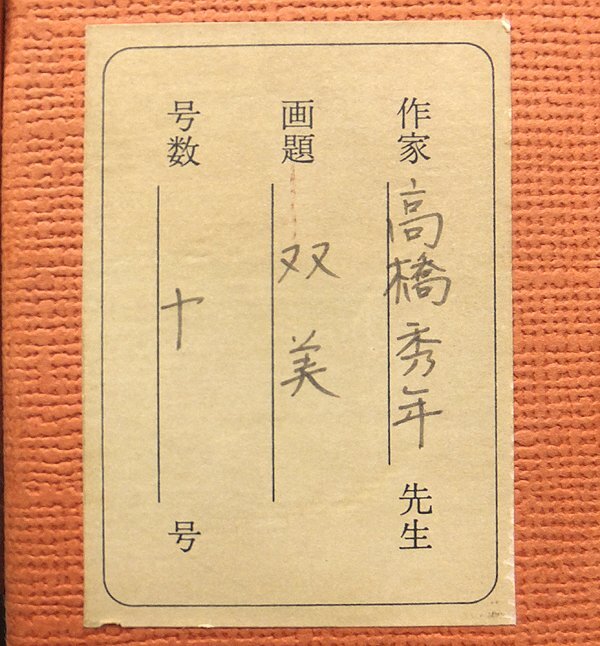 作家 高橋秀年 先生
画題 双美
号数 十 号